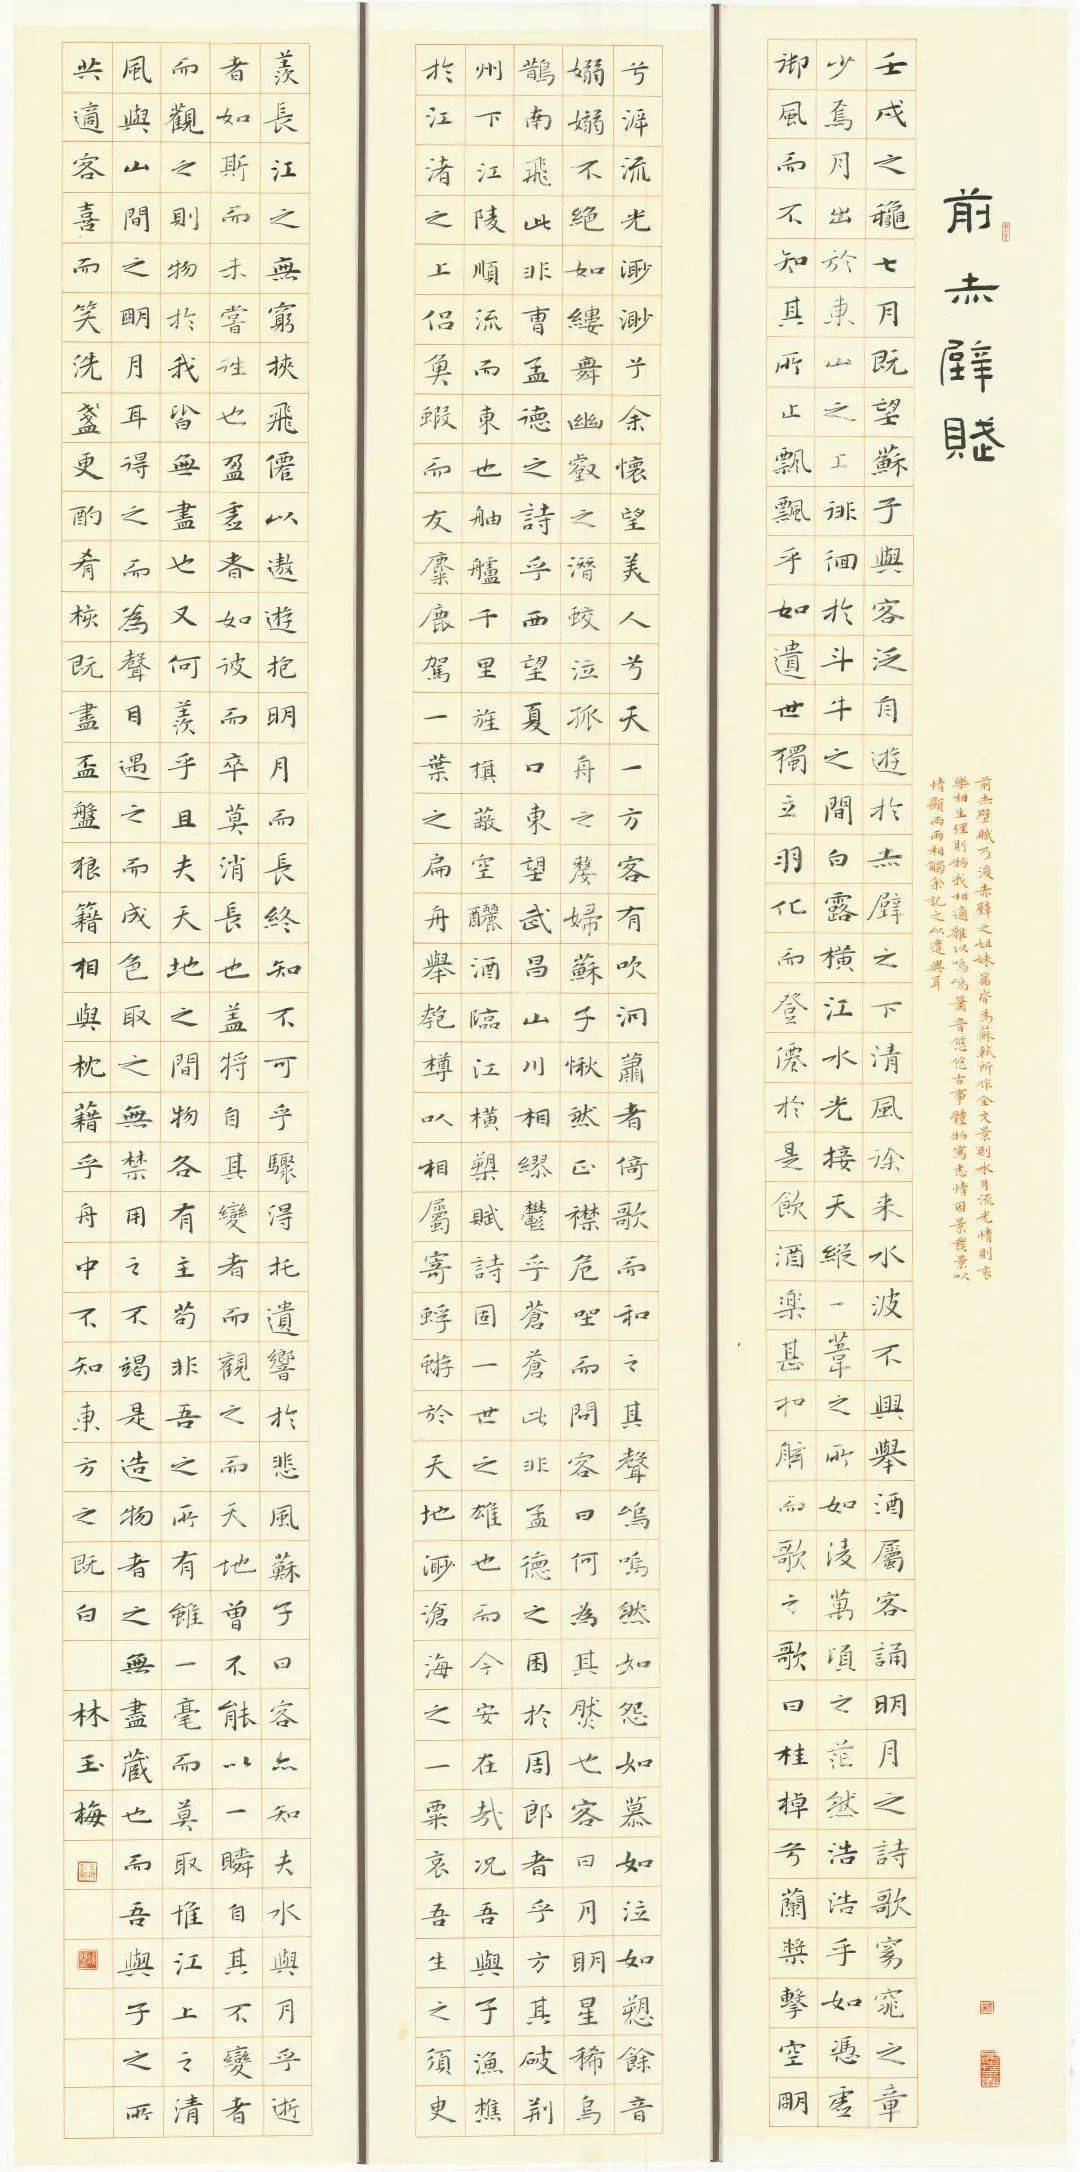 前赤壁賦
前赤壁賦乃後赤壁之姐妹篇皆為蘇軾所作全文景則水月流光情則哀
樂相生理則物我相適雜以嗚嗚簫音悠悠古事體物寓志情因景發景以
情顯兩兩相觸余記之以遣興耳
壬戌之龝七月既望蘇子與客泛舟遊於赤壁之下清風徐来水波不興舉酒屬客誦明月之詩歌窈窕之章
少焉月出於東山之上徘徊於斗牛之間白露橫江水光接天縱一葦之所如淩萬頃之茫然浩浩乎如憑虛
御風而不知其所止飄飄乎如遺世獨立羽化而登僊於是飲酒樂甚扣舷而歌之歌曰桂棹兮蘭槳擊空明
兮泝流光渺渺兮余懷望美人兮天一方客有吹洞簫者倚歌而和之其聲嗚嗚然如怨如慕如泣如愬餘音
嫋嫋不絕如縷舞幽壑之潛蛟泣孤舟之嫠婦蘇子愀然正襟危坐而問客曰何為其然也客曰月明星稀烏
鵲南飛此非曹孟德之詩乎西望夏口東望武昌山川相繆鬱乎蒼蒼此非孟德之困於周郎者乎方其破荊
州下江陵順流而東也舳艫千里旌旗蔽空釃酒臨江橫槊賦詩固一世之雄也而今安在哉况吾與子漁樵
於江渚之上侣魚蝦而友麋鹿駕一葉之扁舟舉匏樽以相屬寄蜉蝣於天地渺滄海之一粟哀吾生之須臾
羨長江之無窮挾飛僊以遨遊抱明月而長終知不可乎驟得托遺響於悲風蘇子曰客亦知夫水與月乎逝
者如斯而未嘗往也盈虛者如彼而卒莫消長也盖將自其變者而觀之而天地曾不能以一瞬自其不變者
而觀之則物於我皆無盡也又何羨乎且夫天地之間物各有主苟非吾之所有雖一毫而莫取惟江上之清
風與山間之明月耳得之而為聲目遇之而成色取之無禁用之不竭是造物者之無盡藏也而吾與子之所
共適客喜而笑洗盞更酌肴核既盡盃盤狼籍相與枕藉乎舟中不知東方之既白 林玉梅